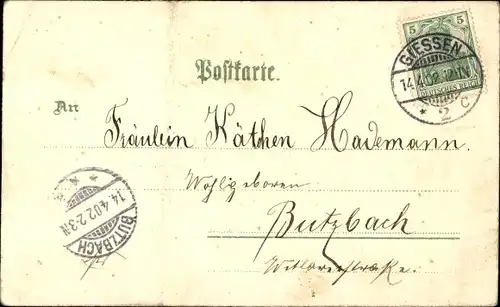 5 5
DEUTSCHES REICH
GIESSEN
14.4.02.12-1N
* 2 c
Postkarte.
An
Fräulein Käthen Hademann.
Wohlgeboren
Butzbach
14.4.02.2-3N
BUTZBACH
Wetzlarerstraße.